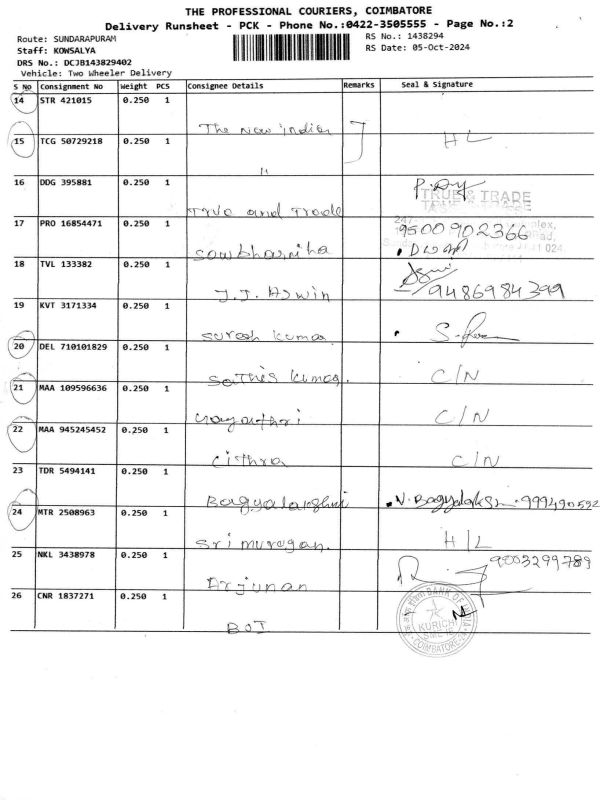 THE PROFESSIONAL COURIERS, COIMBATORE
Delivery Runsheet - PCK - Phone No.:0422-3505555 - Page No.:2
Route: SUNDARAPURAM RS No.: 1438294
Staff: KOWSALYA RS Date: 05-Oct-2024
DRS No.: DCJB143829402
Vehicle: Two Wheeler Delivery
S No Consignment No Weight PCS Consignee Details Remarks Seal & Signature
14 STR 421015 0.250 1
The New indian
15 TCG 50729218 0.250 1 H L
"
16 DDG 395881 0.250 1
True and Trade TRUE & TRADE
17 PRO 16854471 0.250 1 9500902366
Sowbharniha
18 TVL 133382 0.250 1
J.J. Aswin 9486984399
19 KVT 3171334 0.250 1
Suresh Kumar
20 DEL 710101829 0.250 1
Sathis Kumar. C/N
21 MAA 109596636 0.250 1
Gayathri C/N
22 MAA 945245452 0.250 1
Cithra C/N
23 TDR 5494141 0.250 1
Bagyalakshmi N. Bagyalaksh
24 MTR 2508963 0.250 1
Sri murugan. H/L
25 NKL 3438978 0.250 1 9003299789
Arjunan
26 CNR 1837271 0.250 1 BANK OF INDIA
KURICHI
COIMBATORE
BOI